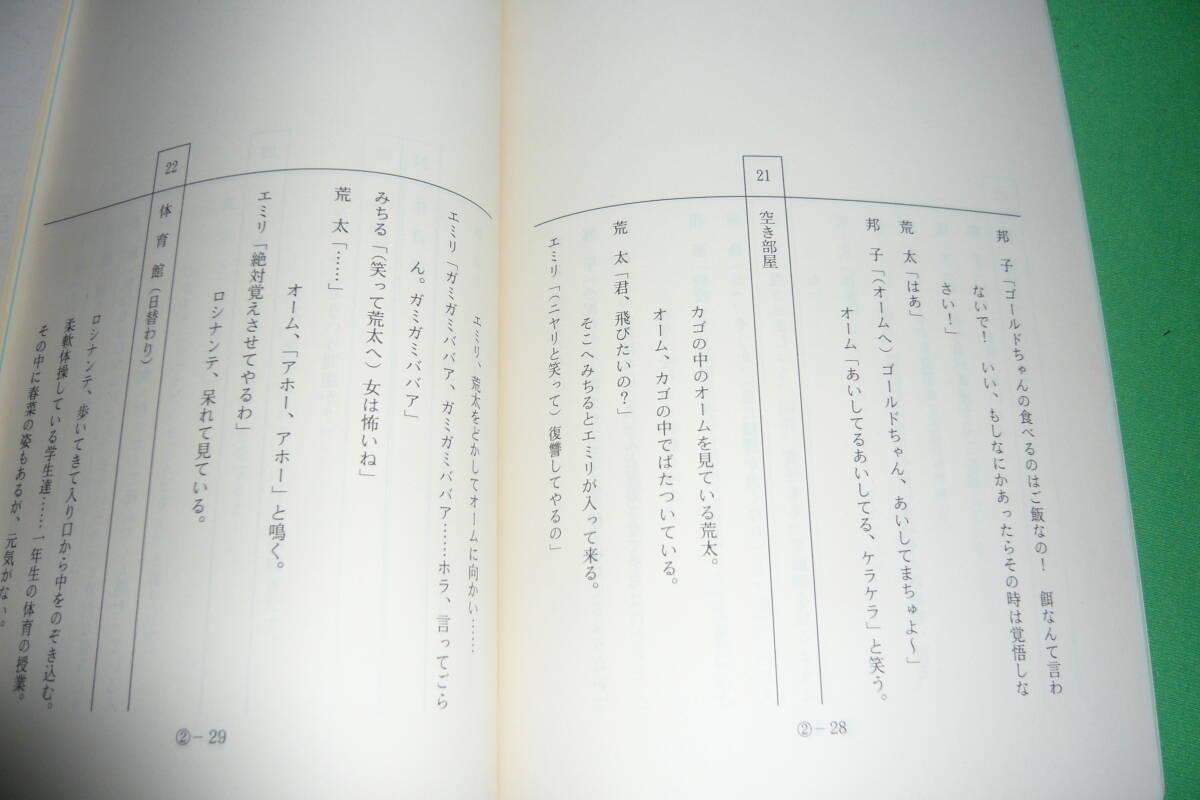 邦　子「ゴールドちゃんの食べるのはご飯なの！　餌なんて言わ
ないで！　いい、もしなにかあったらその時は覚悟しな
さい！」
荒　太「はあ」
邦　子「（オームへ）ゴールドちゃん、あいしてまちゅよ〜」
オーム「あいしてるあいしてる、ケラケラ」と笑う。
21　空き部屋
カゴの中のオームを見ている荒太。
オーム、カゴの中でばたついている。
荒　太「君、飛びたいの？」
そこへみちるとエミリが入って来る。
エミリ「（ニヤリと笑って）復讐してやるの」
②－28
エミリ、荒太をどかしてオームに向かい……
エミリ「ガミガミババア、ガミガミババア……ホラ、言ってごら
ん。ガミガミババア」
みちる「（笑って荒太へ）女は怖いね」
荒　太「……」
オーム、「アホー、アホー」と鳴く。
エミリ「絶対覚えさせてやるわ」
ロシナンテ、呆れて見ている。
22　体　育　館（日替わり）
ロシナンテ、歩いてきて入り口から中をのぞき込む。
柔軟体操している学生達……一年生の体育の授業。
その中に春菜の姿もあるが、元気がない。
②－29